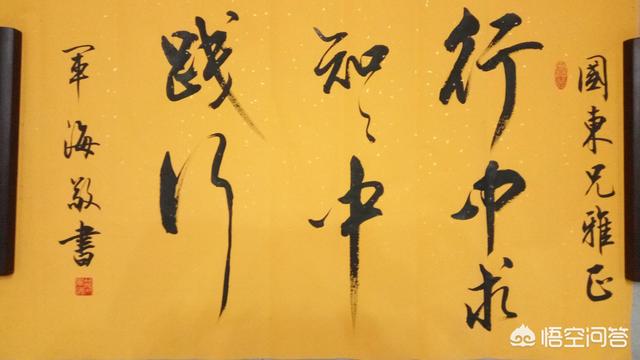 國東兄雅正
行中求
知〻中
践行
军海敬書
悟空问答